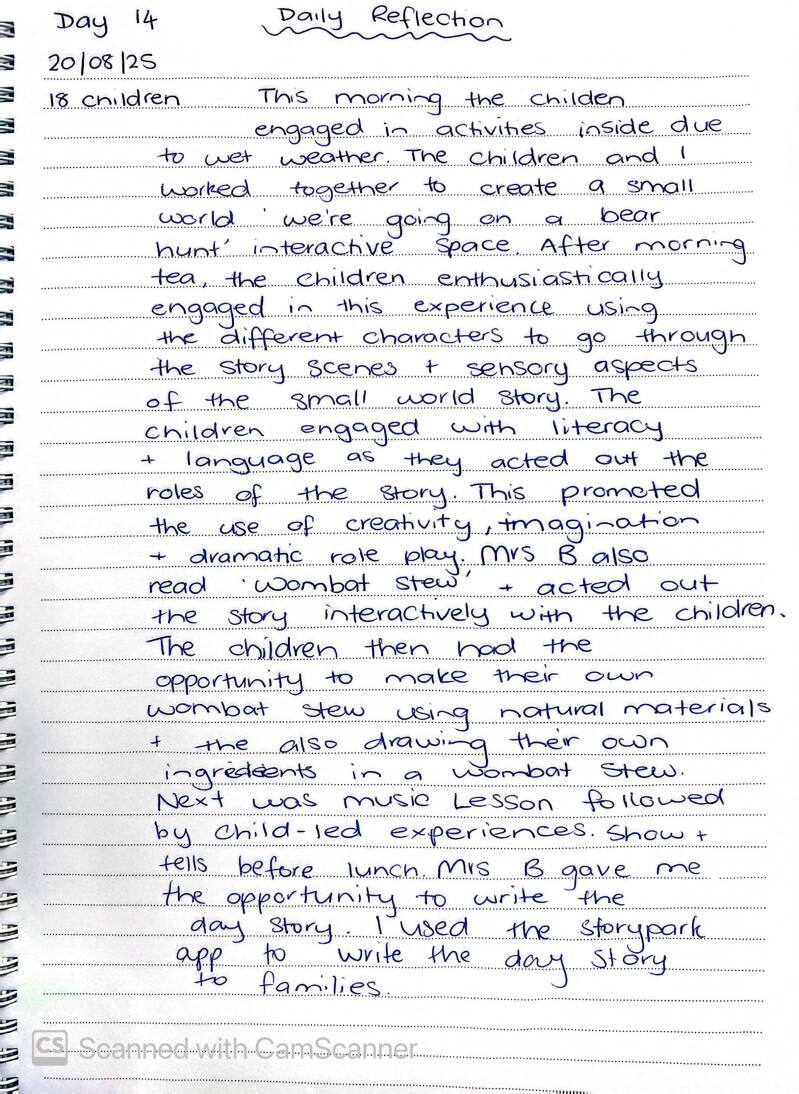 Day 14 Daily Reflection
20/08/25
18 children This morning the childen
engaged in activities inside due
to wet weather. The children and I
worked together to create a small
world 'we're going on a bear
hunt' interactive space. After morning
tea, the children enthusiastically
engaged in this experience using
the different characters to go through
the story scenes + sensory aspects
of the small world story. The
children engaged with literacy
+ language as they acted out the
roles of the story. This promoted
the use of creativity, imagination
+ dramatic role play. Mrs B also
read 'Wombat Stew' + acted out
the story interactively with the children.
The children then had the
opportunity to make their own
wombat stew using natural materials
+ the also drawing their own
ingredients in a wombat stew.
Next was music Lesson followed
by child-led experiences. Show +
tells before lunch. Mrs B gave me
the opportunity to write the
day story. I used the storypark
app to write the day story
to families.
CS Scanned with CamScanner